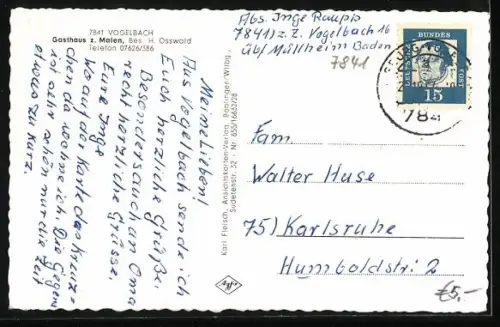 7841 VOGELBACH
Gasthaus z. Maien, Bes. H. Osswald
Telefon 07626/386
Abs. Inge Raupp
7841) z.Z. Vogelbach 16
üb/ Müllheim Baden
7841
DEUTSCHE BUNDESPOST
15
784
Meine Lieben!
Aus Vogelbach sende ich
Euch herzliche Grüße.
Besonders auch an Oma
recht herzliche Grüsse.
Eure Inge
Wo auf der Karte das Kreuz-
chen da wohne ich. Die Gegend
ist sehr schön nur die Zeit
etwas zu kurz.
Karl Fleisch, Ansichtskarten-Verlag, Baolinger-Wttbg.
Sudetenstr. 52 · Nr. 655/16633/28
Agfa
Fam.
Walter Huse
75) Karlsruhe
Humboldstr. 2
€5,-